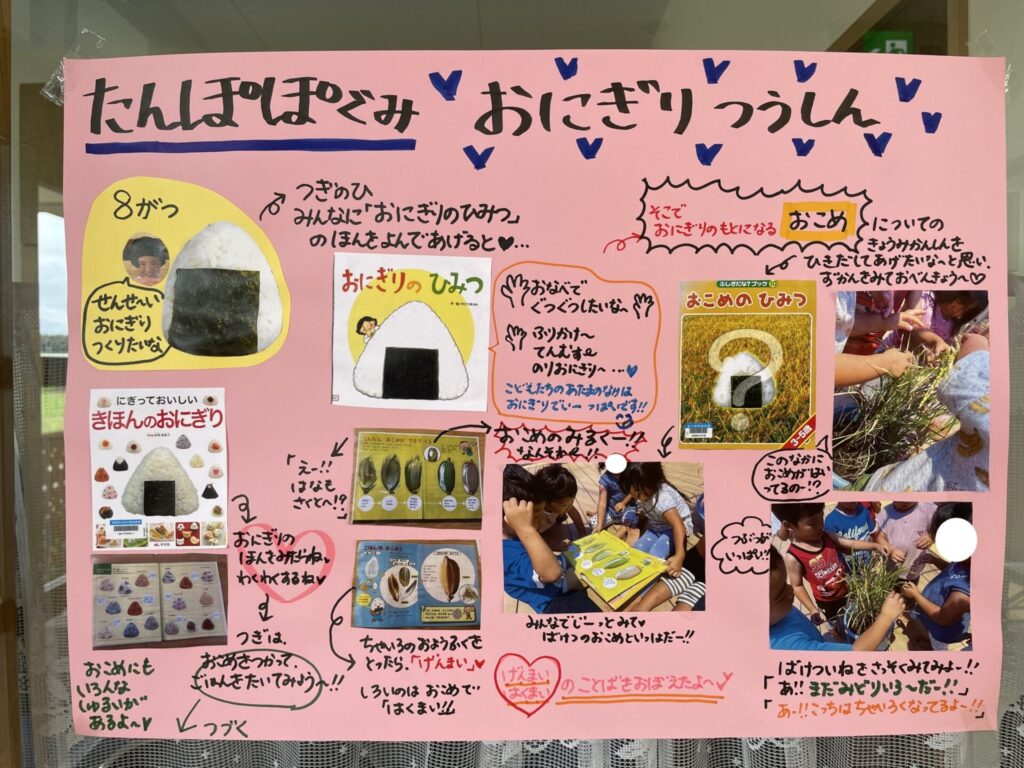 たんぽぽぐみ おにぎりつうしん
8がつ
せんせ〜い
おにぎり
つくりたいな
つぎのひ
みんなに「おにぎりのひみつ」
のほんをよんであげると♥…
おにぎりの ひみつ
おなべで
ぐつぐつしたいな〜
ふりかけ〜
てんむす〜
のりおにぎり〜…♥
こどもたちのあたまのなかは
おにぎりでい〜っぱいです!!
そこで
おにぎりのもとになる
おこめ
についての
きょうみかんしんを
ひきだしてあげたいな〜と思い、
ずかんをみておべんきょう〜♡
ふしぎだな?ブック10
おこめの ひみつ
3-5歳
このなかに
おこめがはい
ってるの〜!?
にぎっておいしい
きほんのおにぎり
おにぎりの
ほんをみたね♥
わくわくするね♥
「え〜!!
はなも
さくと〜!?
おこめのみるく〜!!
なんそれ〜!!
みんなでじーっとみて♥
ばけつのおこめといっしょだー!!
つぶつぶが
いっぱい!!
ちゃいろのおようふくを
とったら、「げんまい」♥
しろいのは おこめで
「はくまい」!!
げんまい
はくまい
のことばをおぼえたよ〜♥
おこめにも
いろんな
しゅるいが
あるよ〜♥
つぎは、
おこめをつかって、
ごはんをたいてみよう〜!!
つづく
ばけついねをさっそくみてみよー!!
「あ!! まだみどりいろ〜だー!!」
「あー!!こっちはちゃいろくなってるよー」